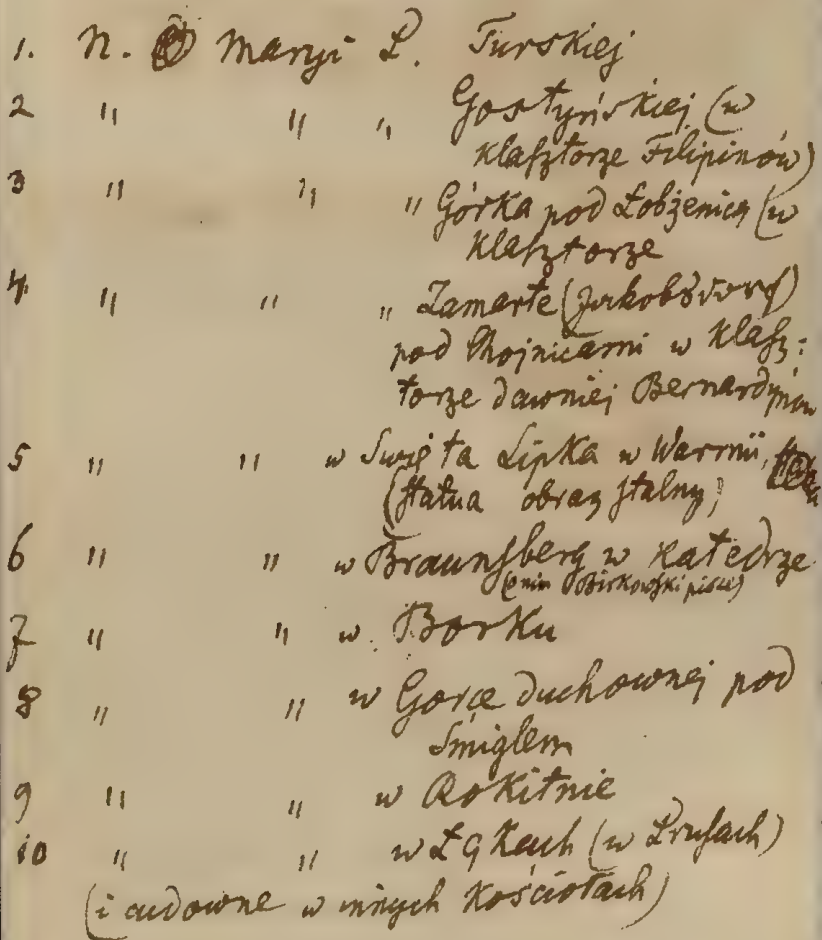 1. N. Maryi P. Turskiej
2 " " " Gostyńskiej (w
klasztorze Filipinów)
3 " " " Górka pod Łobżenicą (w
klasztorze
4. " " " Zamarte (Jakobsdorf)
pod Chojnicami w Klasz:
torze dawniej Bernardynów
5 " " w Swięta Lipka w Warmii,
(Statua obraz stalny)
6 " " w Braunsberg w Katedrze
(o nim Birkowski pisze)
7 " " w Borku
8 " " w Gorce duchownej pod
Śmiglem
9 " " w Rokitnie
10 " " w Łąkach (w Prusach)
(i cudowne w innych Kościołach)